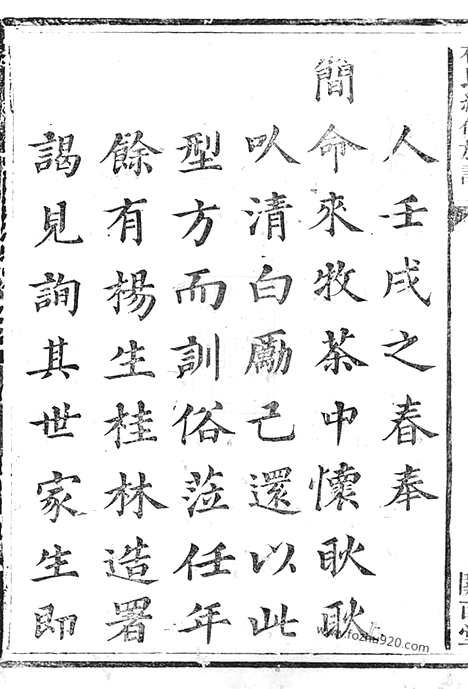 人壬戌之春奉
簡命來牧茶中懷耿耿
㕥清白勵己還以此
型方而訓俗蒞任年
餘有楊生桂林造署
謁見詢其世家生即
www.fozhu920.com